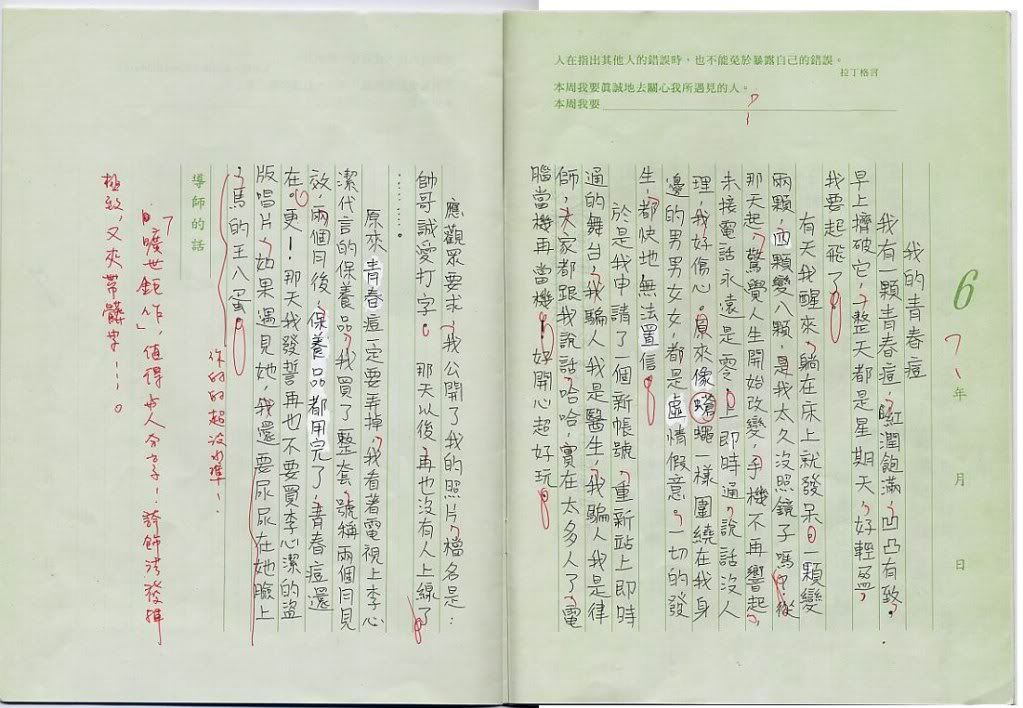 人在指出其他人的錯誤時，也不能免於暴露自己的錯誤。
拉丁格言
本周我要眞誠地去關心我所遇見的人。
本周我要
6
年 月 日
我的青春痘
我有一顆青春痘，紅潤飽滿，凹凸有致，
早上擠破它，整天都是星期天，好輕盈，
我要起飛了。
有天我醒來，躺在床上就發呆。一顆變
兩顆，四顆變八顆，是我太久沒照鏡子嗎？從
那天起，驚覺人生開始改變，手機不再響起，
未接電話永遠是零。上即時通，說話沒人
理，我好傷心。原來像蒼蠅一樣圍繞在我身
邊的男男女女，都是虛情假意。一切的發
生，都快地無法置信。
於是我申請了一個新帳號，重新站上即時
通的舞台，我騙人我是醫生，我騙人我是律
師，大家都跟我說話，哈哈，實在太多人了，電
腦當機再當機。好開心超好玩。
應觀眾要求，我公開了我的照片，檔名是：
帥哥誠愛打字。那天以後，再也沒有人上線了
………。
原來青春痘一定要弄掉，我看著電視上李心
潔代言的保養品，我買了整套，號稱兩個月見
效，兩個月後，保養品都用完了，青春痘還
在。更！那天我發誓再也不要買李心潔的盜
版唱片，如果遇見她，我還要尿尿在她臉上
，馬的王八蛋。
你的的超沒水準！
導師的話
「曠世鉅作」，值得与人分享！誇飾法發揮
極致，又夾帶髒字！！！。